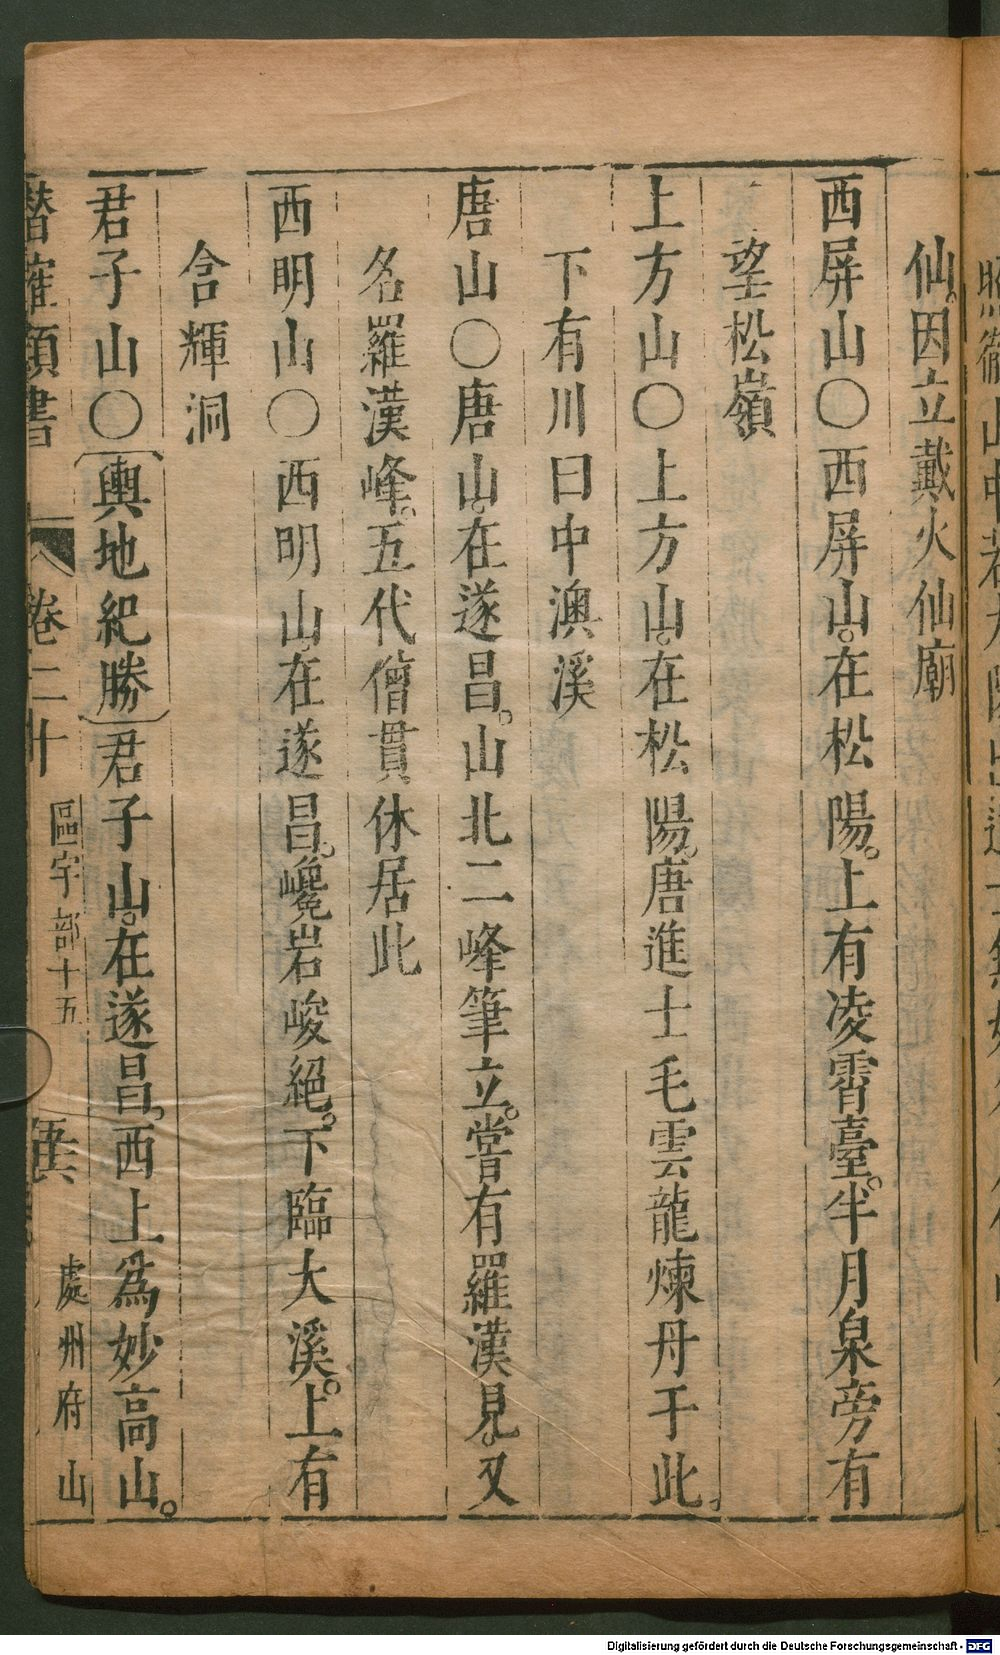 仙。因立戴火仙廟
西屏山○西屏山。在松陽。上有凌霄臺。半月泉旁有
望松嶺
上方山○上方山。在松陽。唐進士毛雲龍煉丹于此。
下有川曰中澳溪
唐山○唐山。在遂昌。山北二峰筆立。嘗有羅漢見。又
名羅漢峰。五代僧貫休居此
西明山○西明山。在遂昌。巉岩峻絕。下臨大溪。上有
含輝洞
君子山○〔輿地紀勝〕君子山。在遂昌。西上爲妙高山。
潛確類書 卷二十 區宇部十五 處州府山
Digitalisierung gefördert durch die Deutsche Forschungsgemeinschaft - DFG